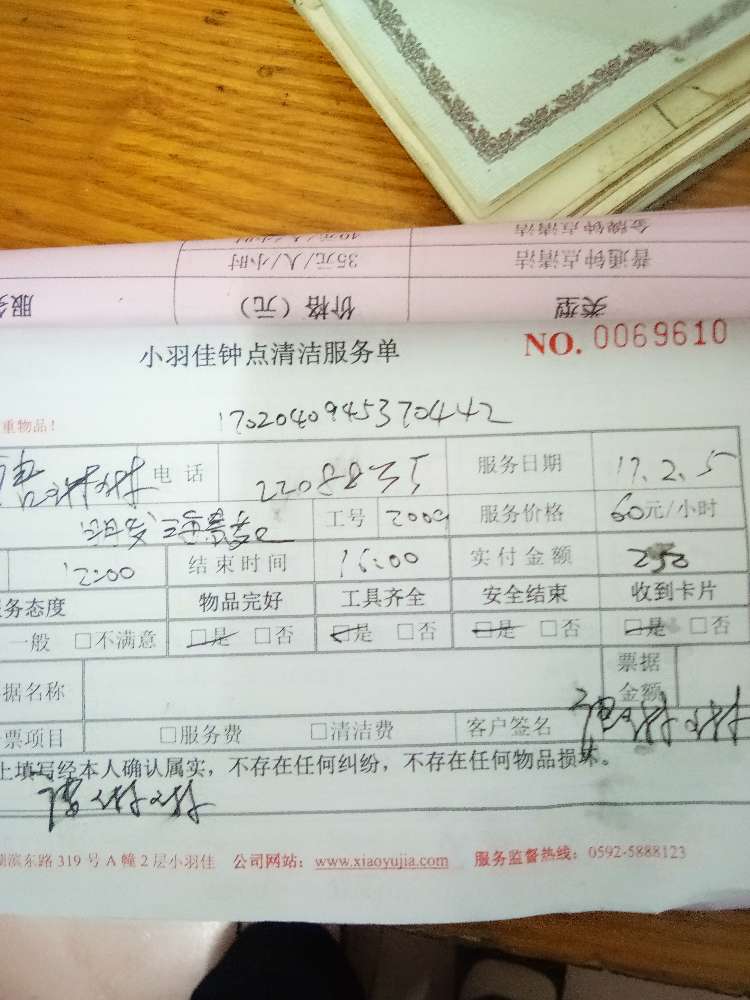 金牌钟点清洁
普通钟点清洁 35元/人/小时
类型 价格(元)
小羽佳钟点清洁服务单 NO. 0069610
重物品!
1702040945370442
电话 服务日期 17.2.5
工号 服务价格 60元/小时
12:00 结束时间 16:00 实付金额
务态度 物品完好 工具齐全 安全结束 收到卡片
一般 □不满意 □是 □否 □是 □否 □是 □否 □是 □否
据名称 票据金额
票项目 □服务费 □清洁费 客户签名
上填写经本人确认属实,不存在任何纠纷,不存在任何物品损坏。
湖滨东路 319 号 A 幢 2 层小羽佳 公司网站:www.xiaoyujia.com 服务监督热线:0592-5888123